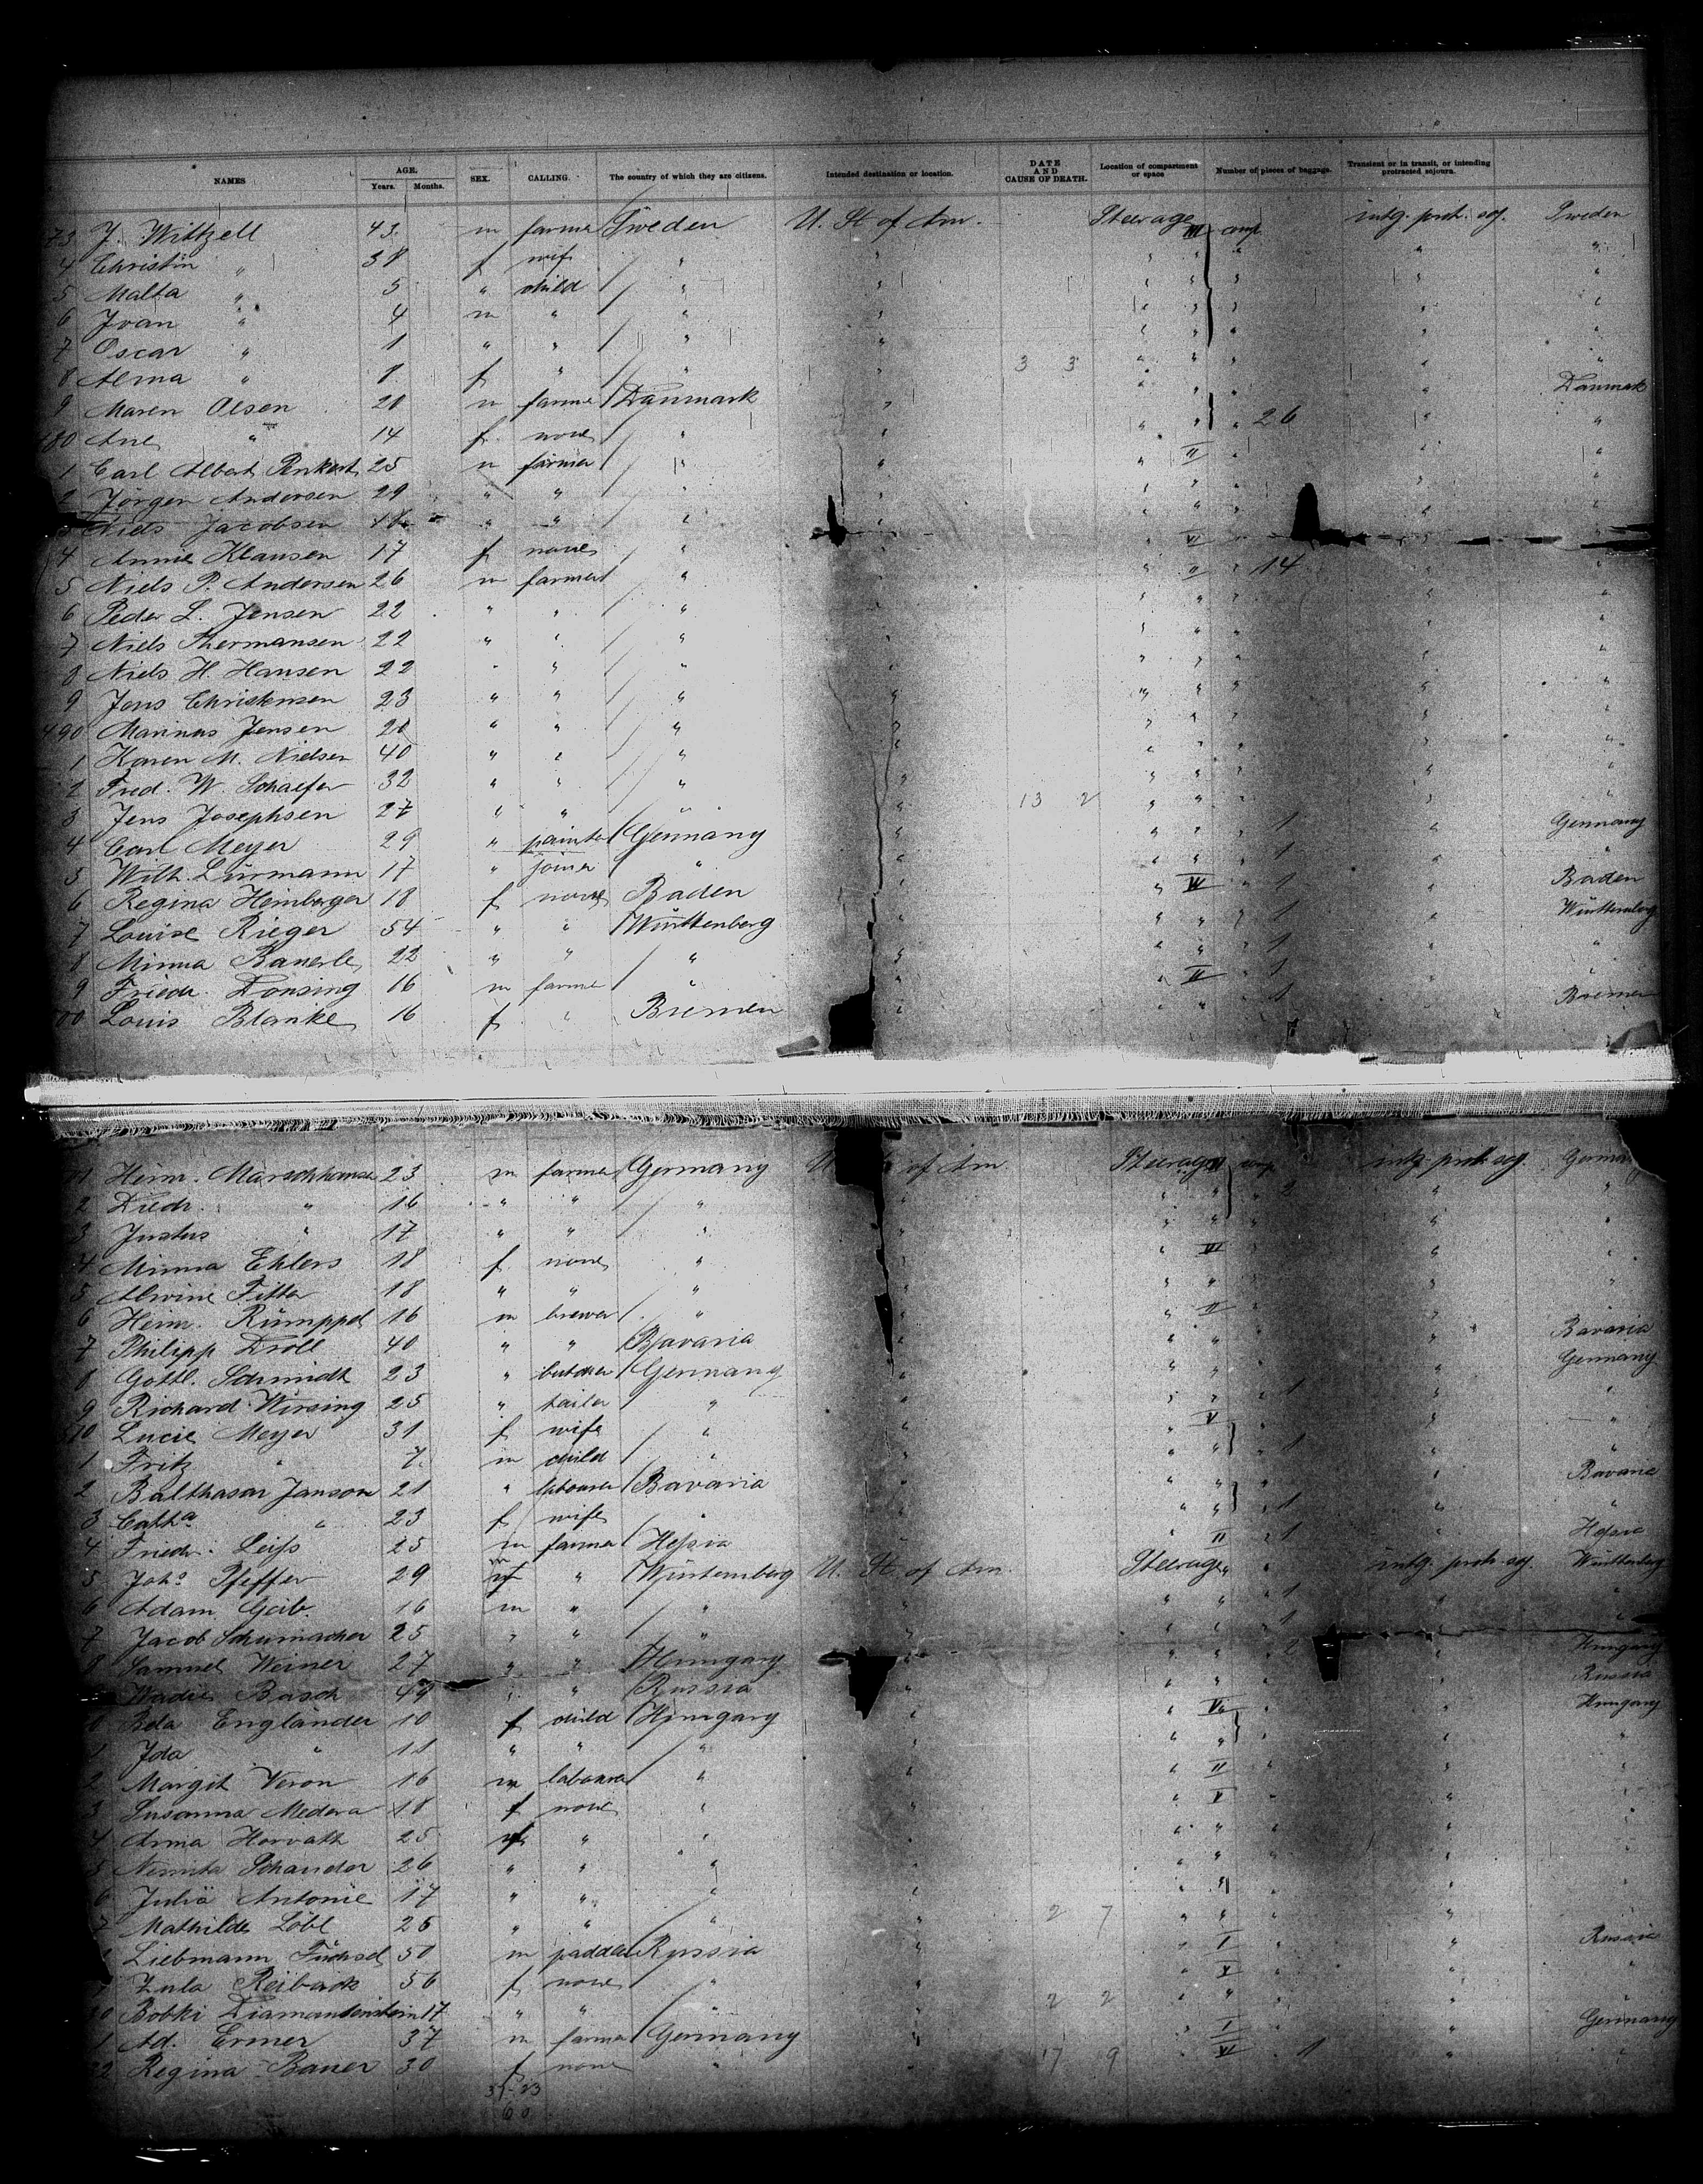 NAMES AGE. Years. Months. SEX. CALLING. The country of which they are citizens. Intended destination or location. DATE AND CAUSE OF DEATH. Location of compartment or space Number of pieces of baggage. Transient or in transit, or intending protracted sojourn.
73 J. Wittzell 43 m farmer Sweden U. St of Am. Steerage III comp. intg. prot. soj. Sweden
4 Christin " 38 f wife " " " "
5 Malta " 5 " child " " " "
6 Ivan " 4 m " " " " "
7 Oscar " 1 " " " " " "
8 Alma " 8 f " " 3 3 " " "
9 Maren Olsen 20 m farmer Danmark " " " " Danmark
480 Ane " 14 f none " " " " 26 " "
1 Carl Albert 25 m farmer " " " II " " "
2 Jörgen Andersen 29 " " " " " " " "
Niels Jacobsen " " " " " "
4 Annie Klausen 17 f none " " VI " "
5 Niels P. Andersen 26 m farmer " " II " 14 "
6 Peder L. Jensen 22 " " " " " " "
7 Niels Thermansen 22 " " " " " " "
8 Niels H. Hansen 22 " " " " " " "
9 Jens Christensen 23 " " " " " " "
490 Marinus Jensen 20 " " " " " " "
1 Karen M. Nielsen 40 " " " " " " "
2 Fred. W. Schaefer 32 " " " " " " "
3 Jens Josephsen 27 " " " " 13 2 " " "
4 Carl Meyer 29 " painter Germany " " " 1 " Germany
5 Wilh. Lürmann 17 " joiner " " " " 1 " "
6 Regina Heimberger 18 f none Baden " " VI " 1 " Baden
7 Louise Rieger 54 " " Württenberg " " " 1 " Württenberg
8 Minna Bauerle 22 " " " " " " 1 " "
9 Friedr. Donsing 16 m farmer " " " II " 1 " "
500 Louis Blanke 16 f " Bremen " " " 1 " Bremen
Heinr. Marschhause 23 m farmer Germany U of Am. Steerage comp intg. prot. soj. Germany
2 Diedr. " 16 " " " " " " 2 " "
3 Justus " 17 " " " " " " "
4 Minna Ehlers 18 f none " " " VI " " "
5 Alwine Fitter 18 " " " " " " "
6 Heinr. Rümppel 16 m brewer " " " II " "
7 Philipp Droll 40 " " Bavaria " " " " Bavaria
8 Gottl. Schmidt 23 " butcher Germany " " " " Germany
9 Richard Wirsing 25 " tailor " " " " " 1 " "
10 Lucie Meyer 31 f wife " " " V " "
1 Fritz " 7 m child " " " " " 1 "
2 Balthasar Janson 21 " labourer Bavaria " " " " Bavaria
3 Catha " 23 f wife " " " " " 1 " "
4 Friedr. Leiss 25 m farmer Hessia " II " 1 " Hessia
5 Johs Pfeffer 29 m " Würtemberg U. St. of Am. Steerage " " intg. prot. soj. Württenberg
6 Adam Geib 16 m " " " " " " 1 " "
7 Jacob Schumacher 25 " " " " " " " 1 "
8 Samuel Weiner 27 " " Hungary " " " 2 " Hungary
Basch 49 " " Russia " " " Russia
Bela Engländer 10 f child Hungary " " VI " " Hungary
1 Ida " 11 " " " " " " "
2 Margit Veron 16 m labourer " " " II " " "
3 Susanna Medera 18 f none " " " V " "
4 Anna Horvath 25 f " " " " " "
5 Schandor 26 " " " " " " "
6 Julia Antonie 17 " " " " " VI " "
7 Mathilde Löbl 26 " " " " 2 7 " " " "
Liebmann Füchsel 50 m paddler Russia " " I " " Russia
Zula Reiback 56 f none " " V " "
30 Bobki Diamandenstein 17 " " " 2 2 " " " "
1 Ad. Ermer 37 m farmer Germany " I " Germany
32 Regina Bauer 30 f none " 17 9 " VI 1 " "
37-23
60